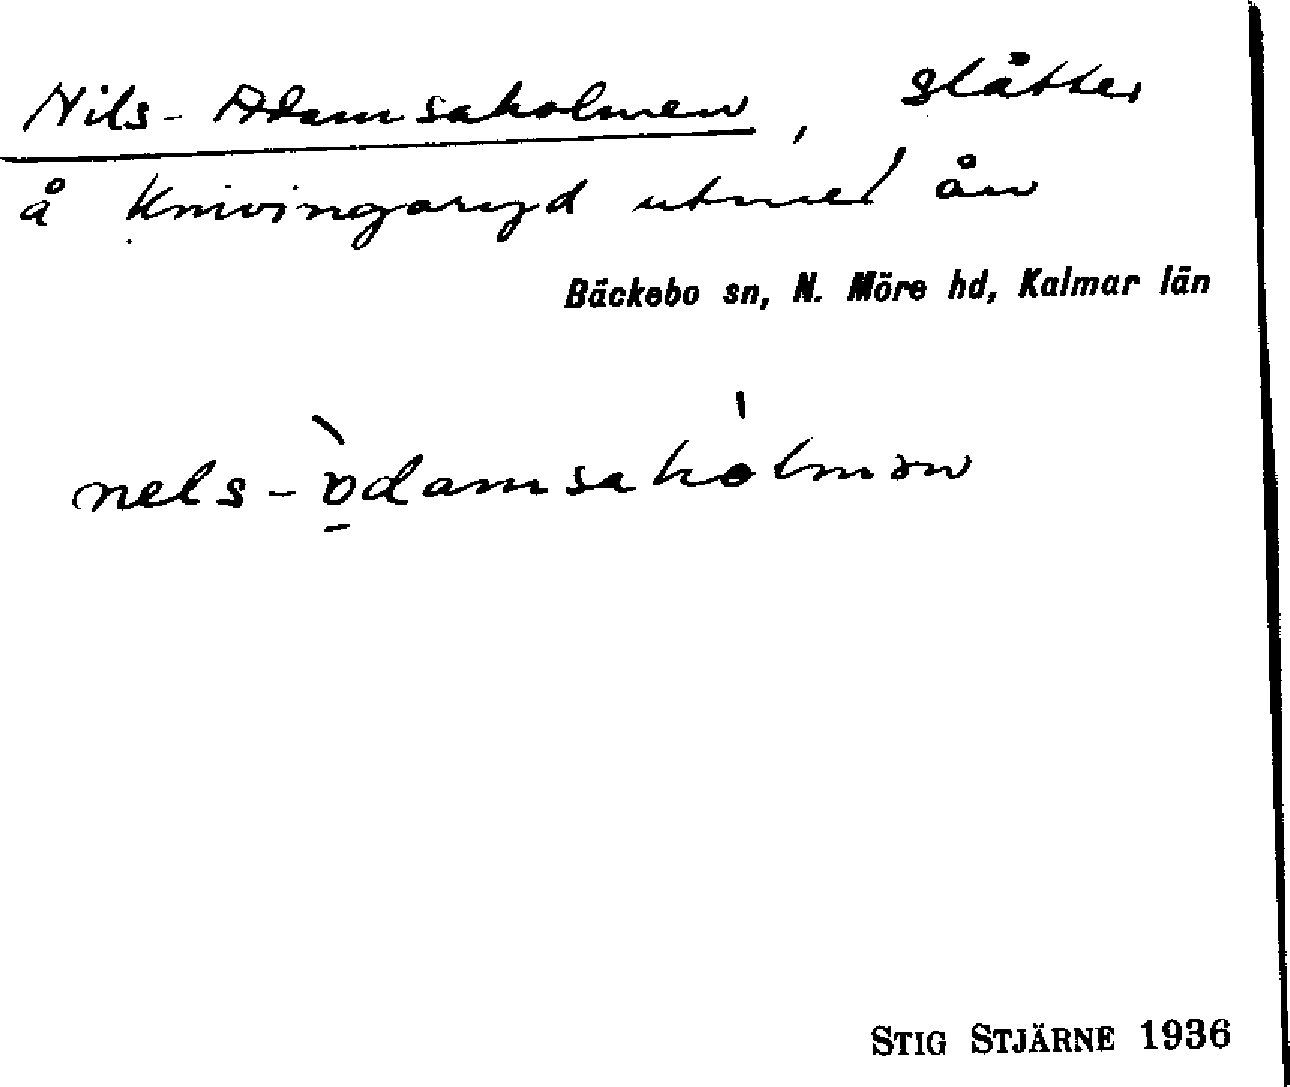 Nils-Adamsaholmen, slåtter
å Knivingaryd utmed ån
Bäckebo sn, N. Möre hd, Kalmar län
nels-
STIG STJÄRNE 1936